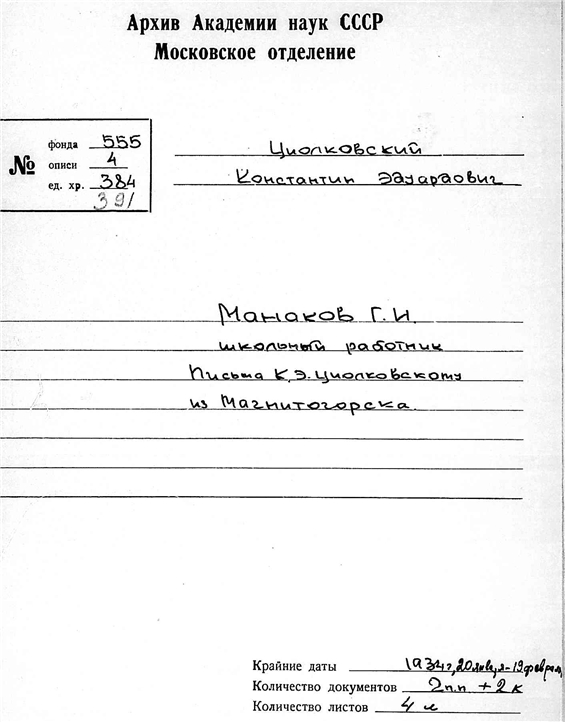 Архив Академии наук СССР
Московское отделение
№
фонда 555
описи 4
ед. хр. 384
391
Циолковский
Константин Эдуардович
Манаков Г.И.
школьный работник
Письма К.Э. Циолковскому
из Магнитогорска.
Крайние даты 1934г, 20 января-19 февраля
Количество документов 2п.п + 2к
Количество листов 4 л